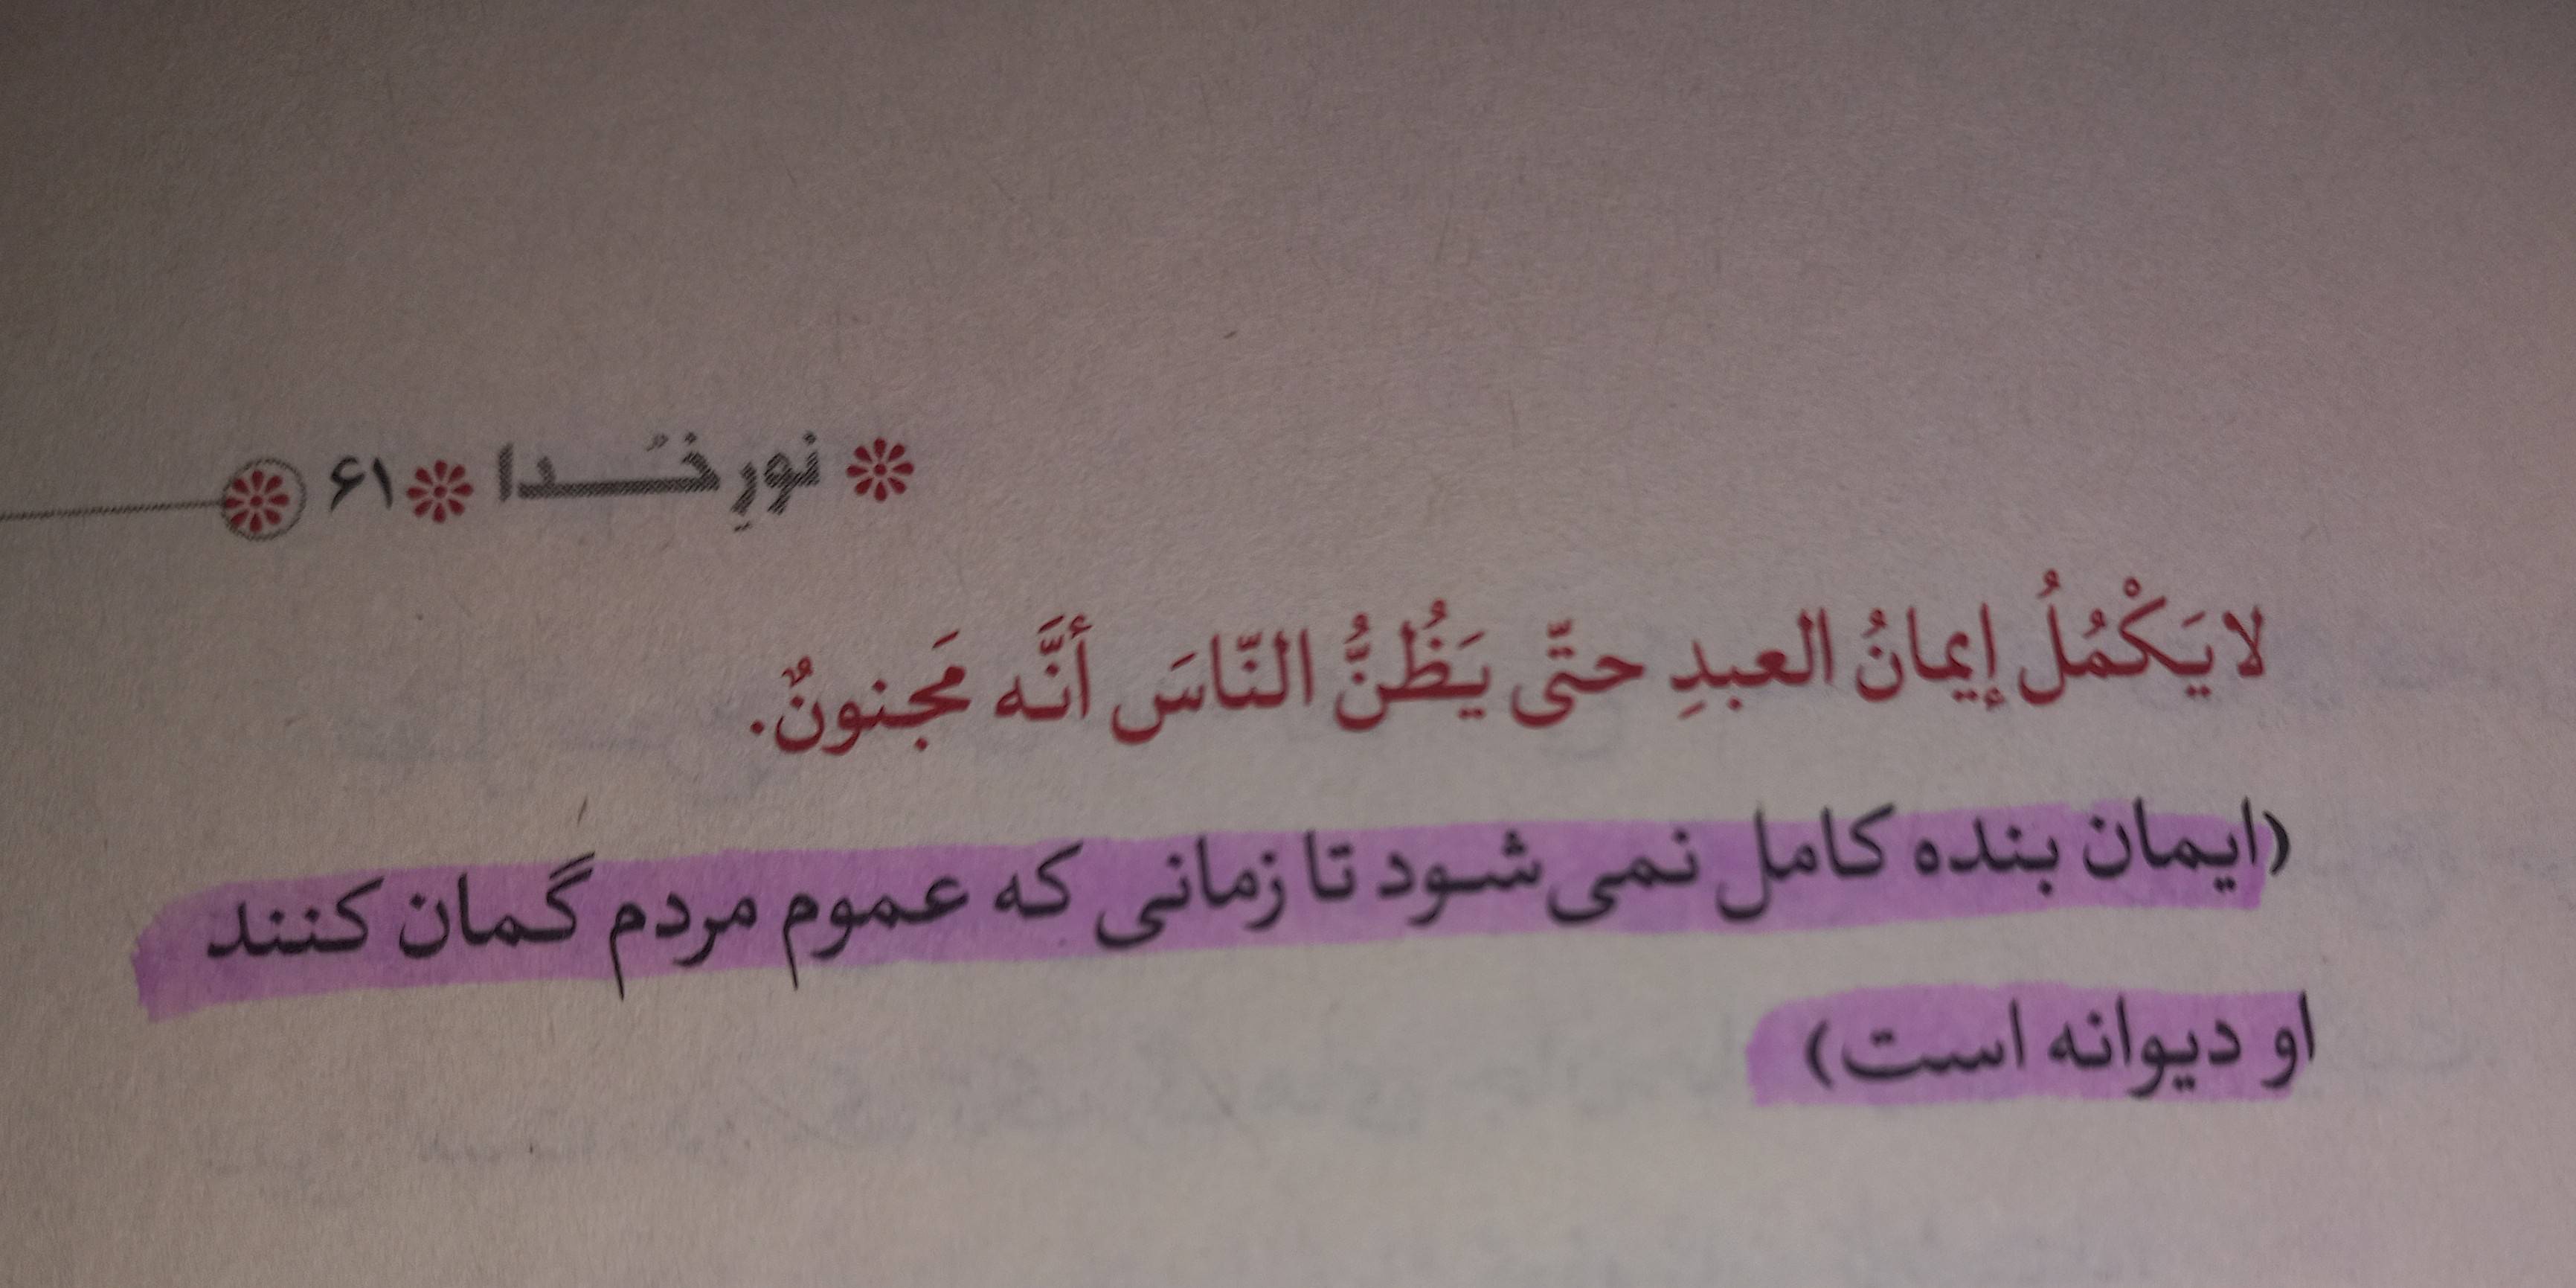 نورِ خُدا ۶۱
لا يَكْمُلُ إيمانُ العبدِ حتّى يَظُنُّ النّاسَ أنَّه مَجنونٌ.
(ایمان بنده کامل نمی‌شود تا زمانی که عموم مردم گمان کنند
او دیوانه است)